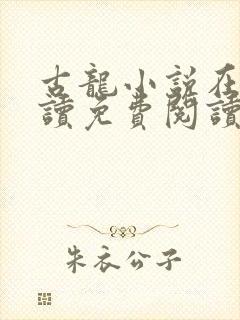 古龍小說在
讀免費閱讀
朱衣公子